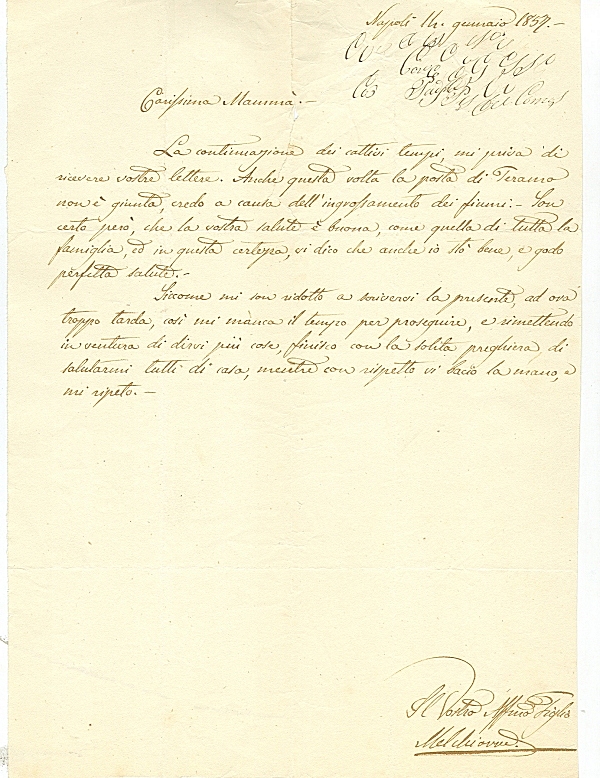 Napoli 14. gennaio 1857.-
Carissima Mammà.-
La continuazione dei cattivi tempi, mi priva di
ricevere vostre lettere. Anche questa volta la posta di Teramo
non è giunta, credo a causa dell'ingrossamento dei fiumi.- Son
certo però, che la vostra salute è buona, come quella di tutta la
famiglia, ed in questa certezza, vi dico che anche io stò bene, e godo
perfetta salute.-
Siccome mi son ridotto a scrivervi la presente, ad ora
troppo tarda, così mi manca il tempo per proseguire, e rimettendo
in ventura di dirvi più cose, finisco con la solita preghiera di
salutarmi tutti di casa, mentre con rispetto vi bacio la mano, e
mi ripeto.-
Il Vostro Affmo Figlio
Melchiorre.